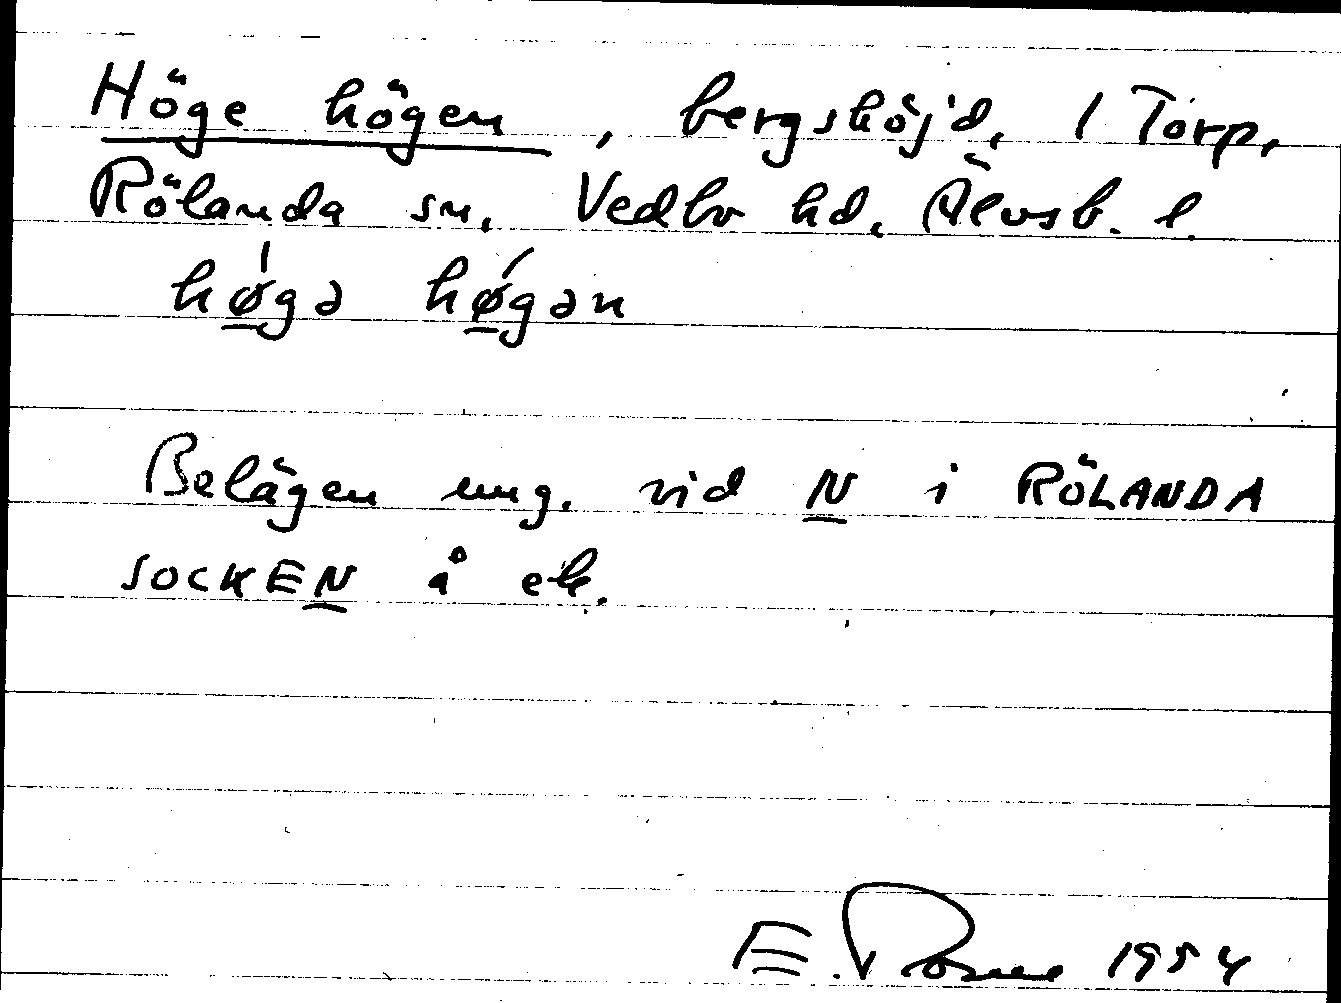 Höge högen, bergshöjd, 1 Torp,
Rölanda sn, Vedbo hd, Älvsb. l.
hǿ̲gə hǿ̲gən
Belägen ung. vid N̲ i RÖLANDA
SOCKEN̲ å ek.
E. 1954